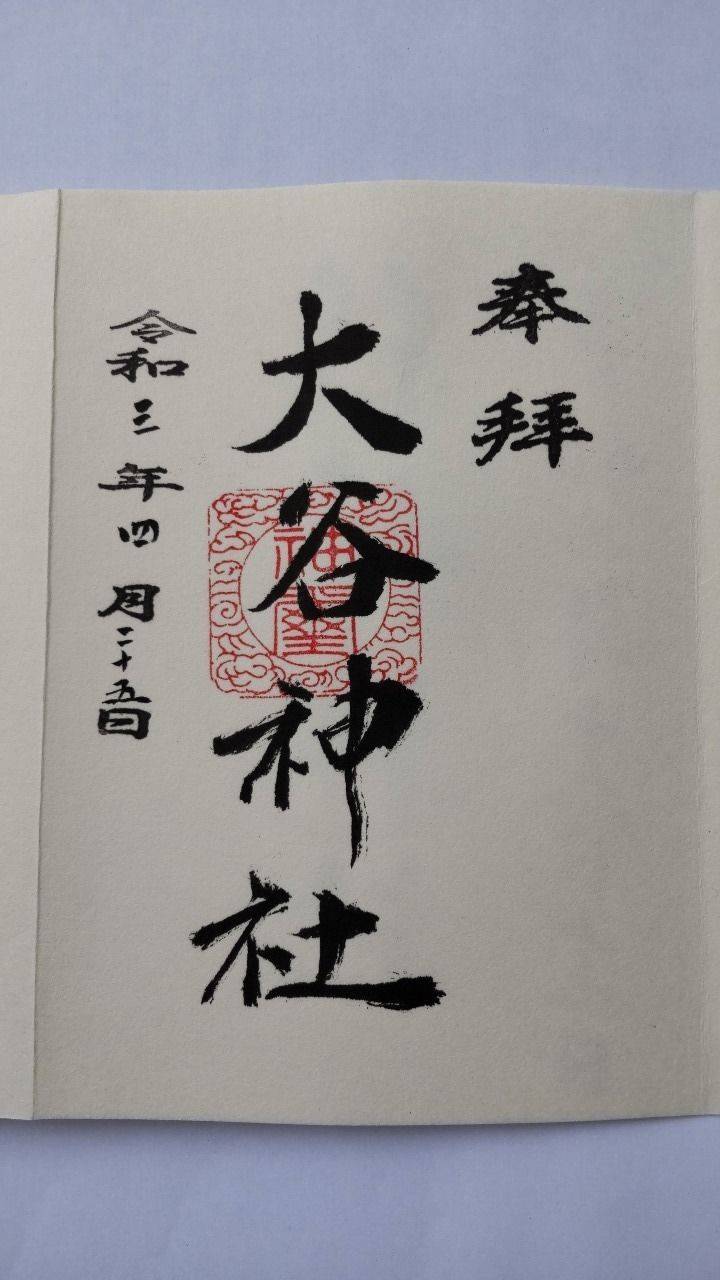 奉拜
大谷神社
令和三年四月二十五日